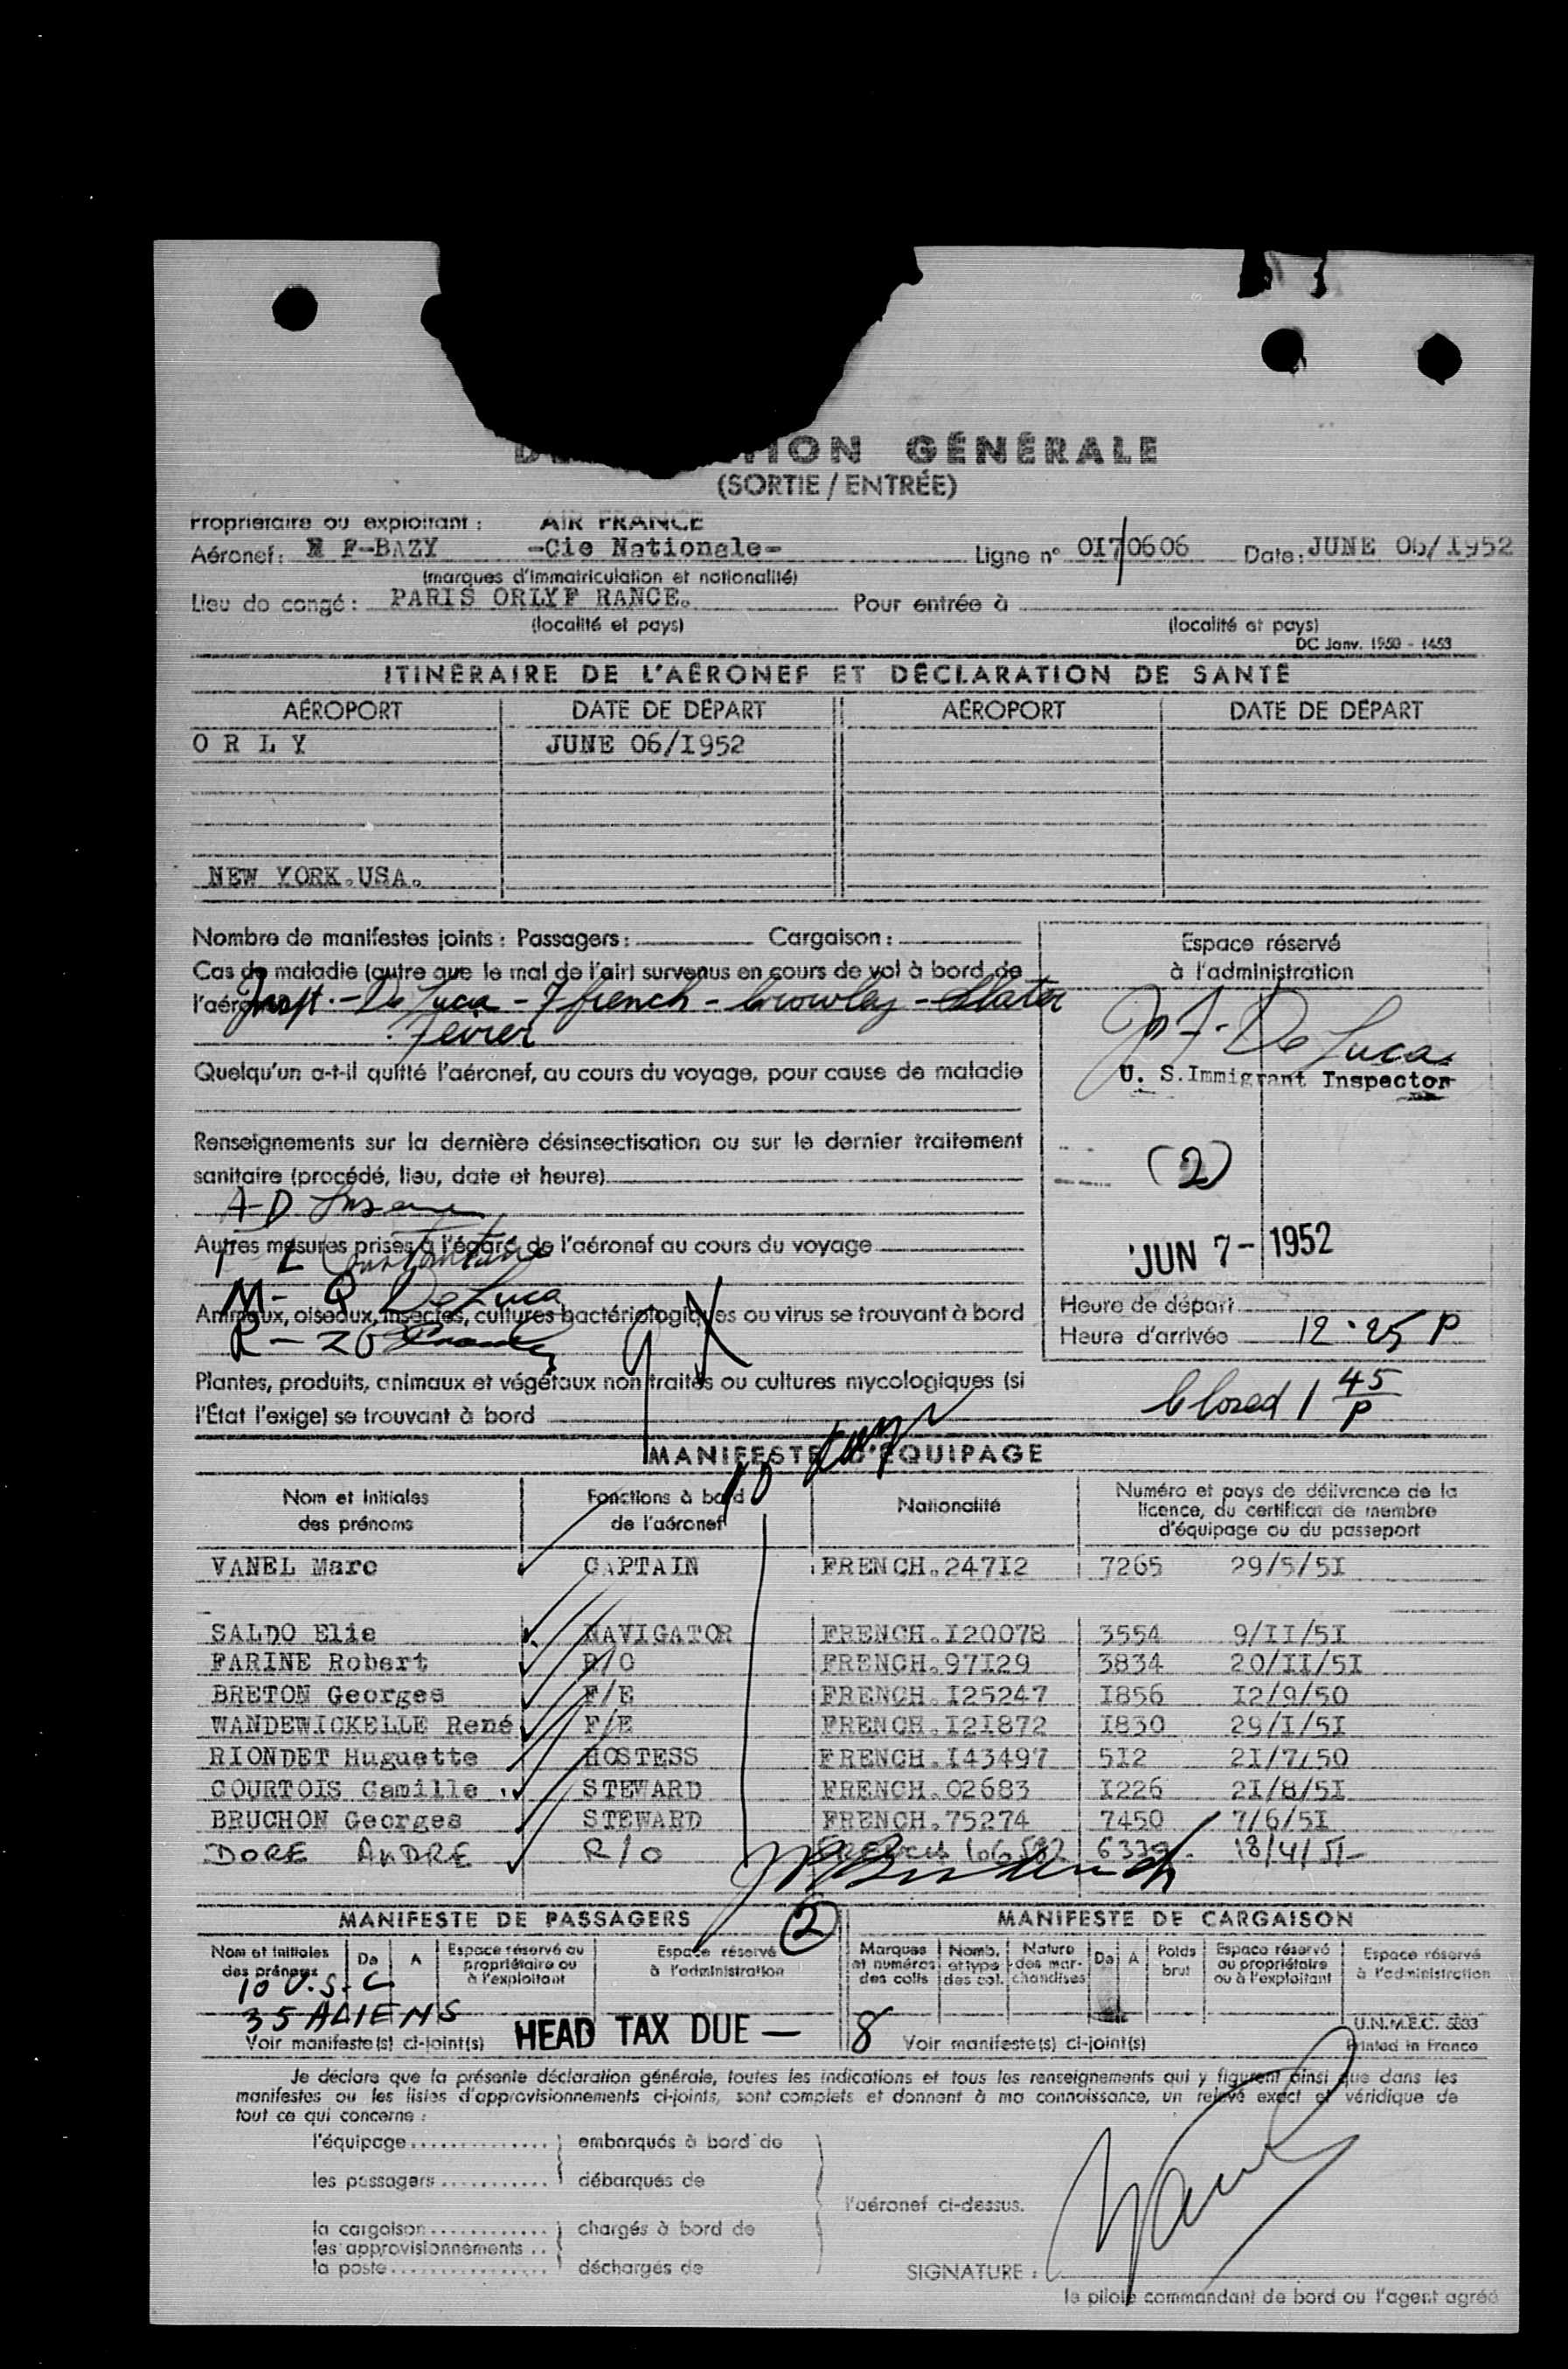 ION GÉNÉRALE
(SORTIE / ENTRÉE)
Propriétaire ou exploitant : AIR FRANCE
Aéronef : F-BAZY -Cie Nationale- Ligne n° OI70606 Date : JUNE 06/I952
(marques d'immatriculation et nationalité)
Lieu de congé : PARIS ORLYF RANCE. Pour entrée à
(localité et pays) (localité et pays)
DC Janv. 1950 - 1453
ITINÉRAIRE DE L'AÉRONEF ET DÉCLARATION DE SANTÉ
AÉROPORT DATE DE DÉPART AÉROPORT DATE DE DÉPART
O R L Y JUNE 06/I952
NEW YORK.USA.
Nombre de manifestes joints : Passagers : Cargaison :
Espace réservé
à l'administration
Cas de maladie (autre que le mal de l'air) survenus en cours de vol à bord de
l'aéronef Inspt. - De Luca - French - Crowley - Slater
J. F. De Luca
U. S. Immigrant Inspector
Quelqu'un a-t-il quitté l'aéronef, au cours du voyage, pour cause de maladie
Renseignements sur la dernière désinsectisation ou sur le dernier traitement
sanitaire (procédé, lieu, date et heure)
(2)
A-D
Autres mesures prises à l'égard de l'aéronef au cours du voyage
JUN 7 - 1952
M- Q De Luca
Animaux, oiseaux, insectes, cultures bactériologiques ou virus se trouvant à bord
Heure de départ
Heure d'arrivée 12.25 P
Plantes, produits, animaux et végétaux non traités ou cultures mycologiques (si
l'État l'exige) se trouvant à bord
Closed 1 45 P
MANIFESTE D'ÉQUIPAGE
Nom et initiales des prénoms Fonctions à bord de l'aéronef Nationalité Numéro et pays de délivrance de la licence, du certificat de membre d'équipage ou du passeport
VANEL Marc CAPTAIN FRENCH.247I2 7265 29/5/5I
SALDO Elie NAVIGATOR FRENCH.I20078 3554 9/II/5I
FARINE Robert R/O FRENCH.97I29 3834 20/II/5I
BRETON Georges F/E FRENCH.I25247 I856 I2/9/50
WANDEWICKELLE René F/E FRENCH.I2I872 I830 29/I/5I
RIONDET Huguette HOSTESS FRENCH.I43497 5I2 2I/7/50
COURTOIS Camille STEWARD FRENCH.02683 I226 2I/8/5I
BRUCHON Georges STEWARD FRENCH.75274 7450 7/6/5I
DORE ANDRE R/O 18/4/51
MANIFESTE DE PASSAGERS (2) MANIFESTE DE CARGAISON
Nom et initiales des prénoms De A Espace réservé au propriétaire ou à l'exploitant Espace réservé à l'administration Marques et numéros des colis Nomb. et type des col. Nature des marchandises De A Poids brut Espace réservé au propriétaire ou à l'exploitant Espace réservé à l'administration
10 U.S.C
35 ALIENS
HEAD TAX DUE — 8
U.N.M.E.C. 5833
Voir manifeste(s) ci-joint(s) Voir manifeste(s) ci-joint(s) Printed in France
Je déclare que la présente déclaration générale, toutes les indications et tous les renseignements qui y figurent ainsi que dans les
manifestes ou les listes d'approvisionnements ci-joints, sont complets et donnent à ma connaissance, un relevé exact et véridique de
tout ce qui concerne :
l'équipage embarqués à bord de
les passagers débarqués de
l'aéronef ci-dessus.
la cargaison chargés à bord de
les approvisionnements
la poste déchargés de
SIGNATURE :
le pilote commandant de bord ou l'agent agréé